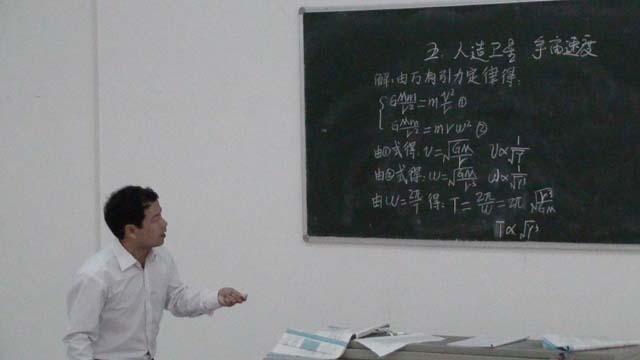 五、人造卫星 宇宙速度
解:由万有引力定律得:
G Mm/r² = m v²/r ①
G Mm/r² = m r ω² ②
由①式得: v = √(GM/r) v ∝ 1/√r
由②式得: ω = √(GM/r³) ω ∝ 1/√r³
由 ω = 2π/T 得: T = 2π/ω = 2π √(r³/GM)
T ∝ √r³